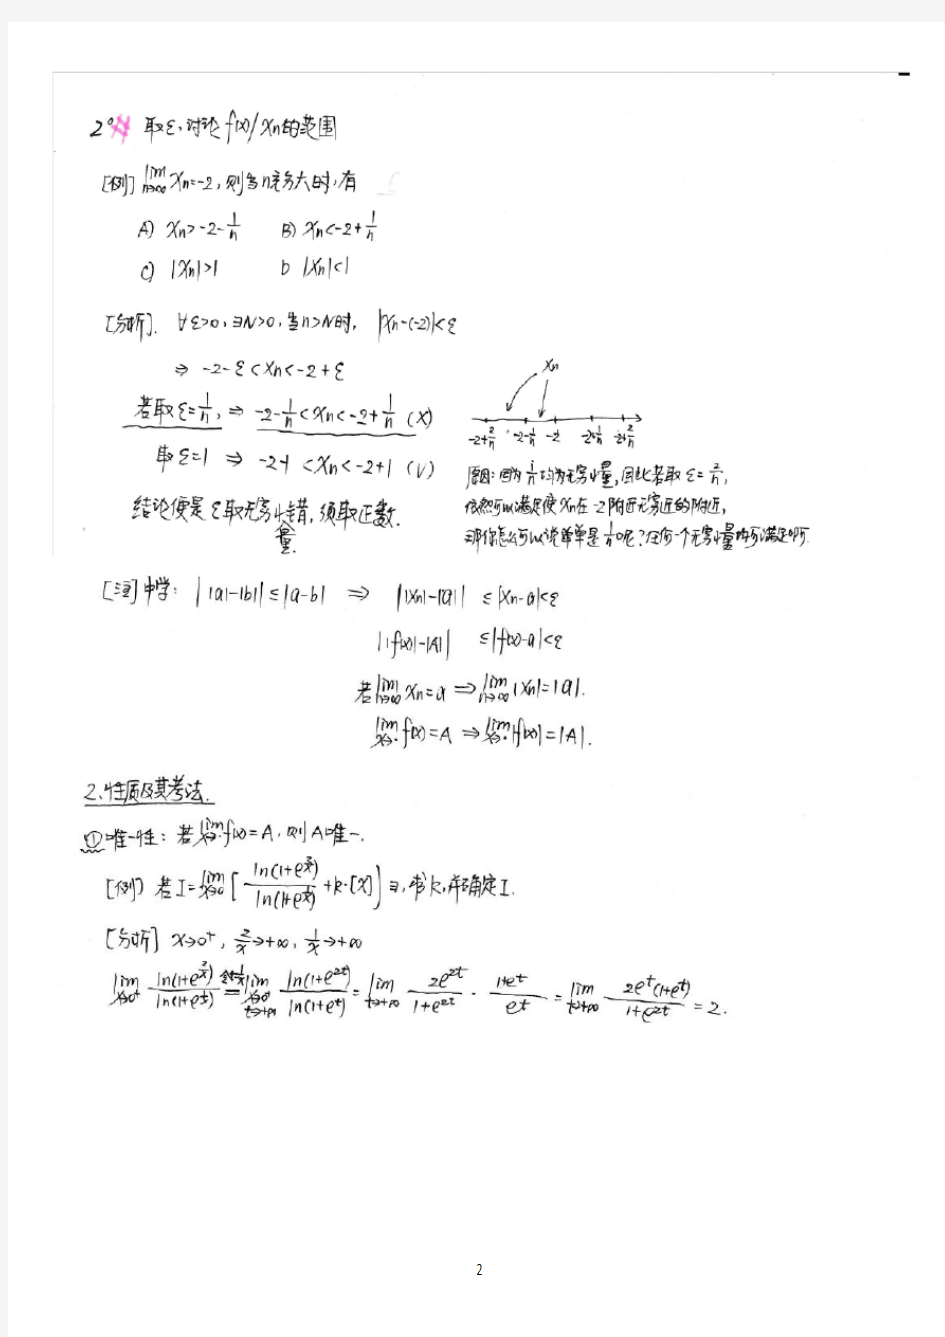 2° 取ε,讨论f(x)/Xn的范围
[例] lim n→∞ Xn=-2,则当n充分大时,有
A) Xn>-2-1/n B) Xn<-2+1/n
C) |Xn|>1 D |Xn|<1
[分析]. ∀ε>0,∃N>0,当n>N时, |Xn-(-2)|<ε
⇒ -2-ε<Xn<-2+ε
若取ε=1/n, ⇒ -2-1/n<Xn<-2+1/n (X)
取ε=1 ⇒ -2-1<Xn<-2+1 (√)
结论便是ε取无穷小量错,须取正数.
Xn
-2+2/n -2-1/n -2 -2+1/n -2+2/n
原因:因为1/n均为无穷小量,因此若取ε=2/n,
依然可以满足使Xn在-2附近无穷近的附近,
那你怎么可以说单单是1/n呢?任何一个无穷小量均可满足啊.
[注]中学: ||a|-|b||≤|a-b| ⇒ ||Xn|-|a|| ≤|Xn-a|<ε
||f(x)|-|A|| ≤|f(x)-a|<ε
若lim n→∞ Xn=a ⇒ lim n→∞ |Xn|=|a|.
lim x→· f(x)=A ⇒ lim x→· |f(x)|=|A|.
2、性质及其考法.
①唯一性:若lim x→· f(x)=A,则A唯一.
[例] 若I=lim x→0 [ln(1+e^(2/x))/ln(1+e^(1/x))+k·[x]]∃,求k,并确定I.
[分析] x→0⁺, 2/x→+∞, 1/x→+∞
lim x→0⁺ ln(1+e^(2/x))/ln(1+e^(1/x)) 令t=1/x = lim t→+∞ ln(1+e^(2t))/ln(1+e^t) = lim t→+∞ 2e^(2t)/(1+e^(2t)) · (1+e^t)/e^t = lim t→+∞ 2e^t(1+e^t)/(1+e^(2t)) = 2.
2